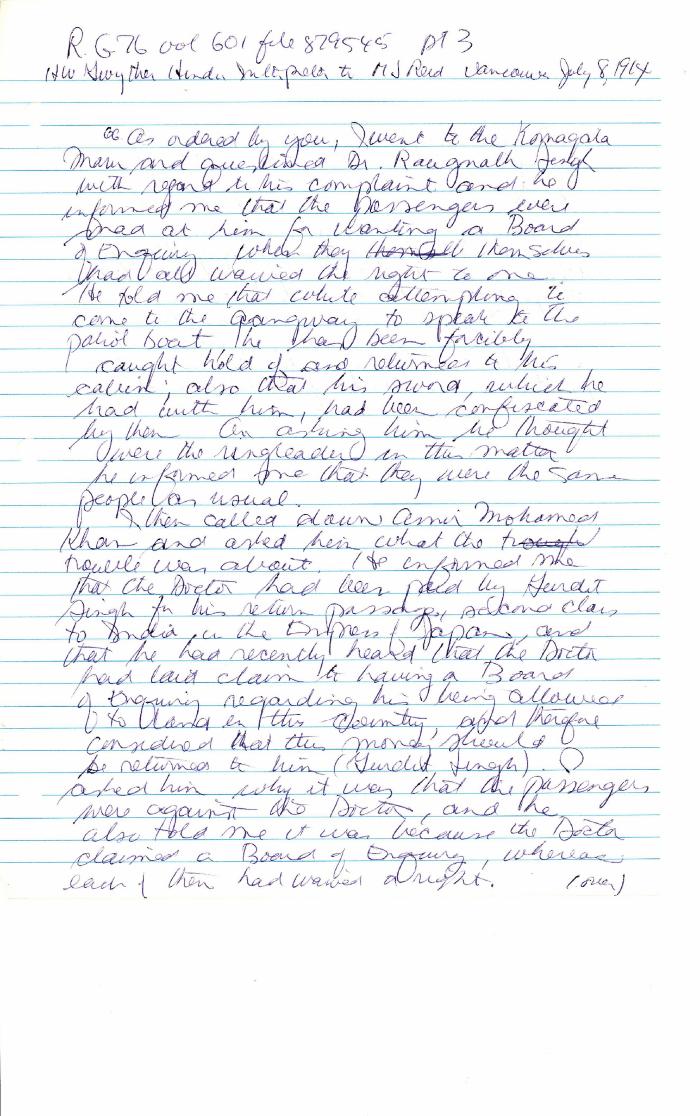 R.G 76 vol 601 file 879545 pt 3
HW Gwyther Hindu Interpreter to MJ Reid Vancouver July 8, 1914
"As ordered by you, I went to the Komagata
Maru and questioned Dr. Raugnath Singh
with regard to his complaint and he
informed me that the passengers were
mad at him for wanting a Board
of Enquiry when they themselves
had all waived the right to one.
He told me that while attempting to
come to the gangway to speak to the
patrol boat, he had been forcibly
caught hold of and returned to his
cabin; also that his sword, which he
had with him, had been confiscated
by them On asking him he thought
were the ringleaders in this matter
he informed me that they were the same
people as usual.
I then called down Amir Mohamed
Khan and asked him what the trough
trouble was about. He informed me
that the Doctor had been paid by Gurdit
Singh for his return passage, second class
to India, in the Empress of Japan, and
that he had recently heard that the Doctor
had laid claim to having a Board
of Enquiry regarding his being allowed
to land in this Country, and therefore
considered that this money should
be returned to him (Gurdit Singh). I
asked him why it was that the passengers
were against the Doctor, and he
also told me it was because the Doctor
claimed a Board of Enquiry, whereas
each of them had waived a right. (over)